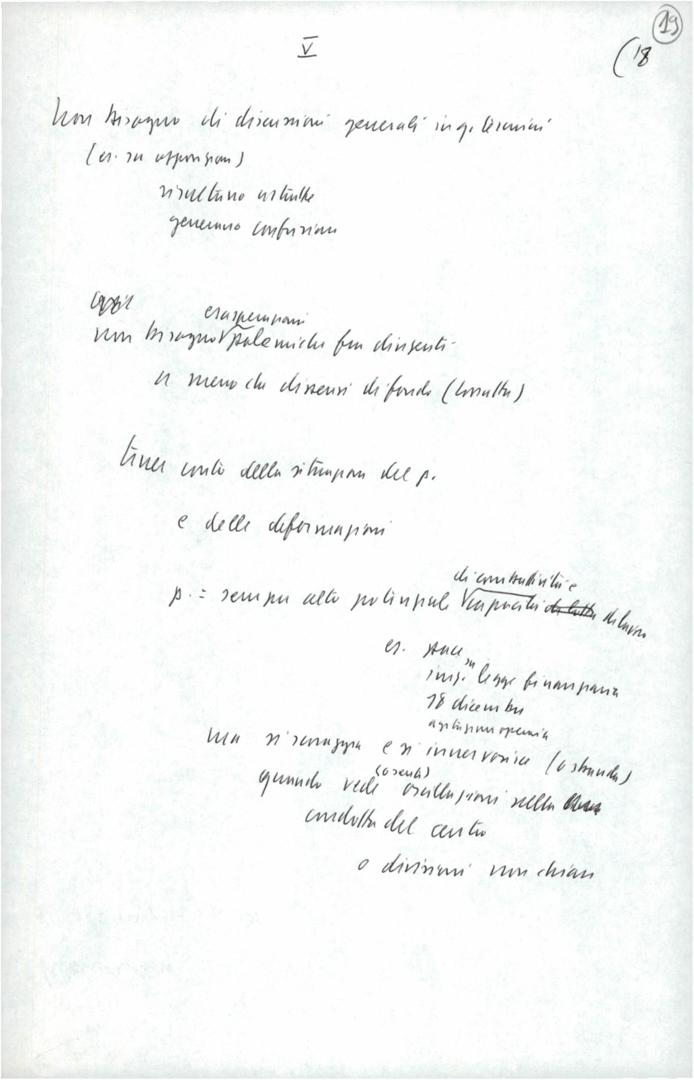 19
(18
V
non bisogno di discussioni generali in q. termini
(es. su opposizione)
risultano astratte
generano confusione
oggi
esasperazioni
non bisogno polemiche fra dirigenti
a meno che dissensi di fondo (Cossutta)
tener conto della situazione del p.
e delle deformazioni
di combattività e
p. = sempre alto potenziale capacità di lotta di lavoro
es. pace
su
iniz. legge finanziaria
18 dicembre
agitazione operaia
ma si scoraggia e si innervosisce (o sbanda)
(o sente)
quando vede oscillazioni nella
condotta del centro
o divisioni non chiare